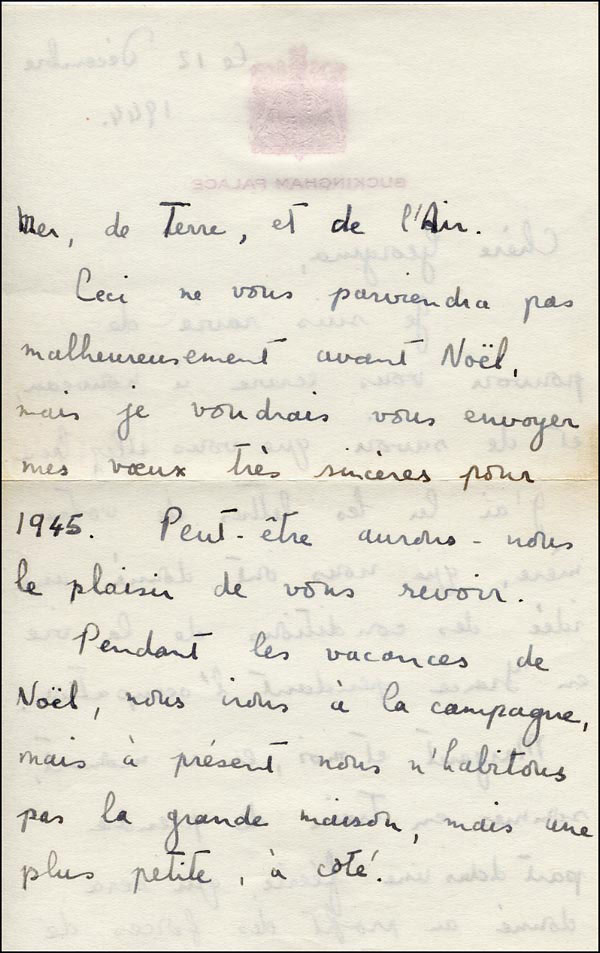 Mer, de Terre, et de l'Air.
Ceci ne vous parviendra pas
malheureusement avant Noël,
mais je voudrais vous envoyer
mes vœux très sinceres pour
1945. Peut-être aurons-nous
le plaisir de vous revoir.
Pendant les vacances de
Noël, nous irons à la campagne,
mais à présent nous n'habitons
pas la grande maison, mais une
plus petite, à côté.